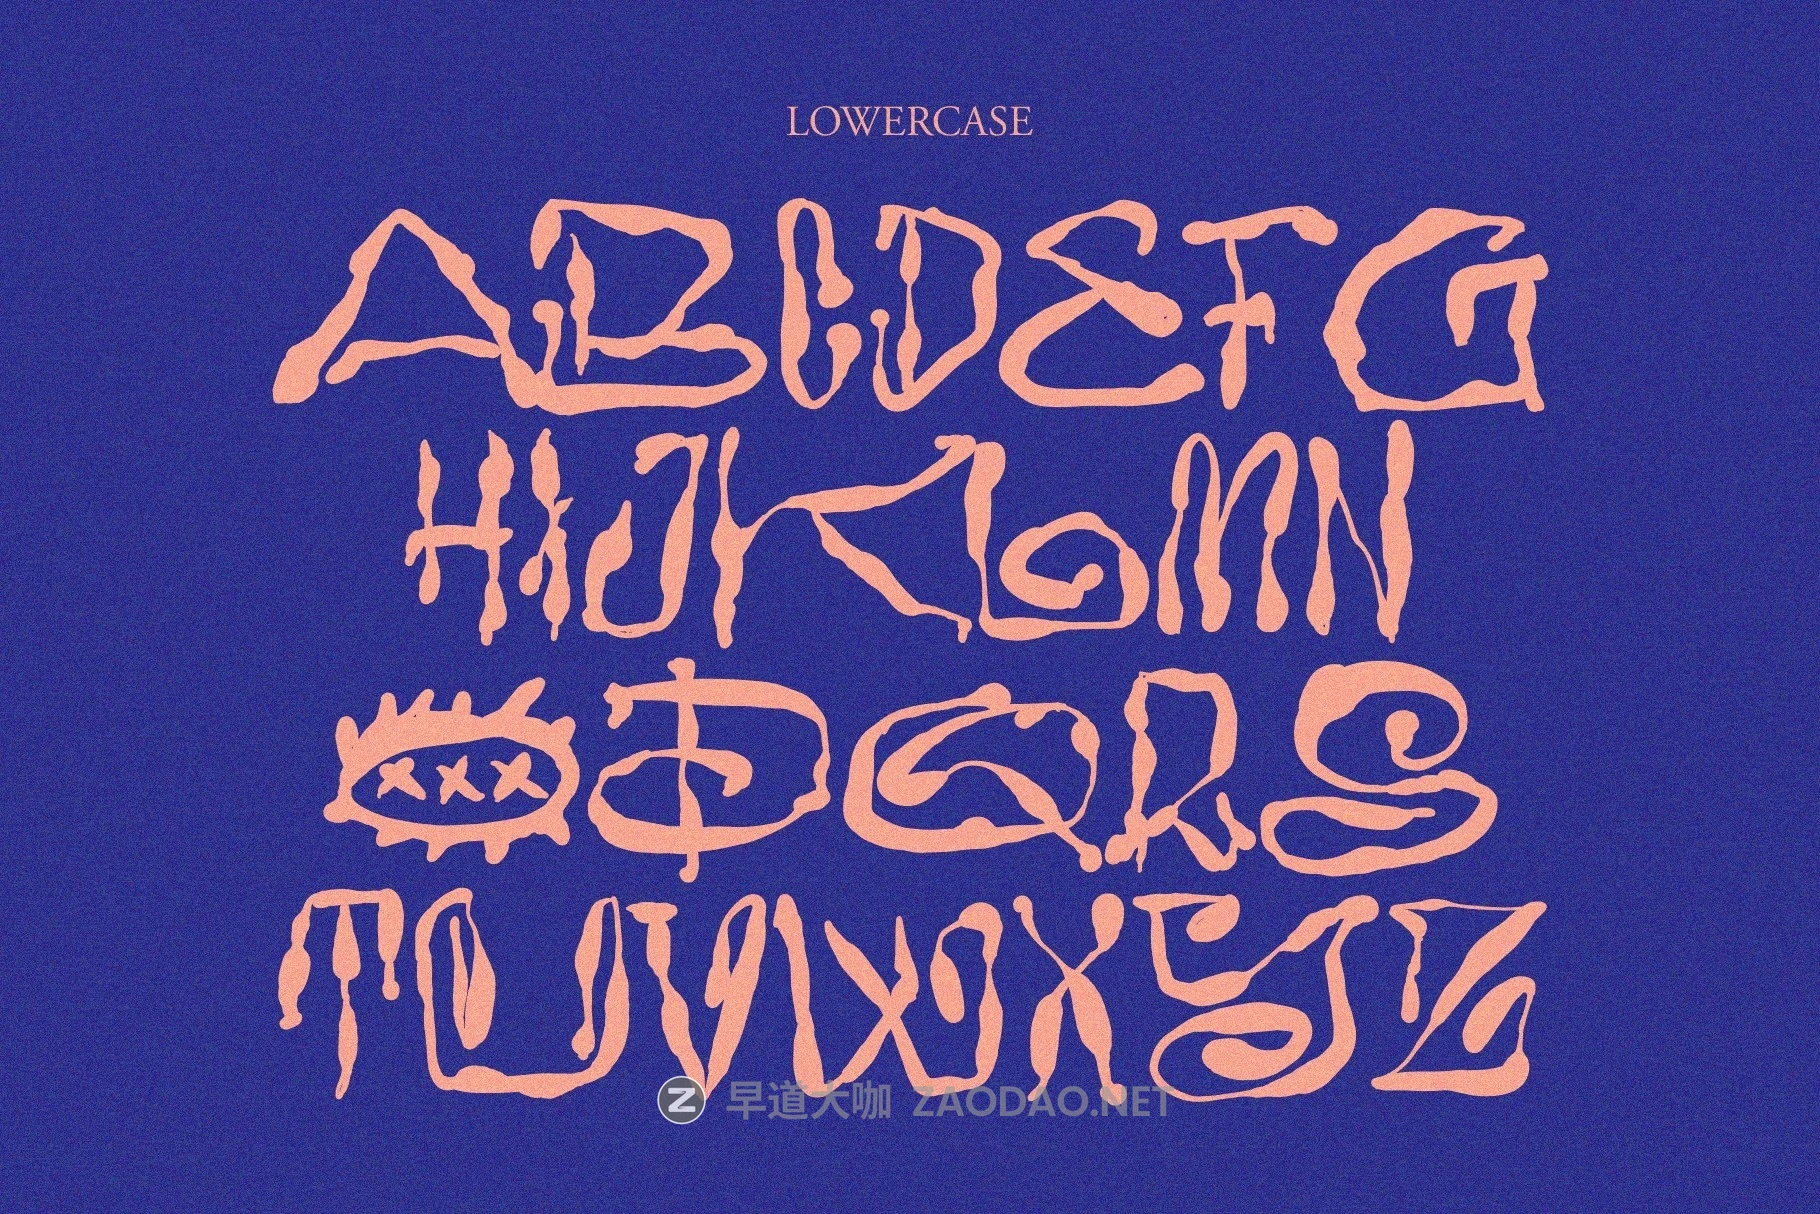 LOWERCASE
ABCDEFG
HIJKLMN
OPQRS
TUVWXYZ
Z 早道大咖 ZAODAO.NET